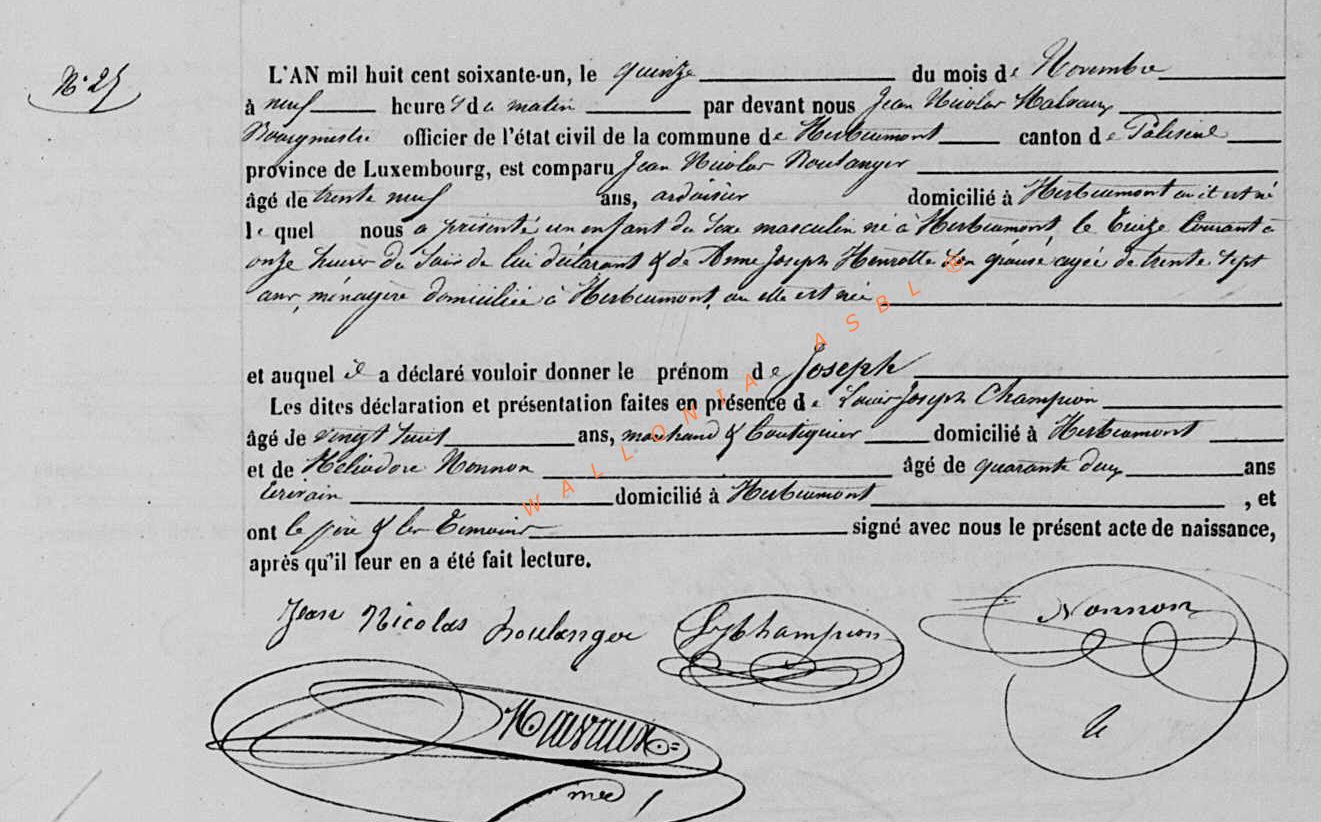 N° 25
L'AN mil huit cent soixante-un, le quinze du mois de Novembre
à neuf heures du matin par devant nous Jean Nicolas
Bourgmestre officier de l'état civil de la commune de Herbeumont canton de Paliseul
province de Luxembourg, est comparu Jean Nicolas Boulanger
âgé de trente neuf ans, ardoisier domicilié à Herbeumont où il est né
lequel nous a présenté un enfant du sexe masculin né à Herbeumont, le treize Courant à
onze heures du Soir de lui déclarant & de Anne Joseph Henrotte son épouse agée de trente sept
ans, ménagère domiciliée à Herbeumont, ou elle est née
et auquel il a déclaré vouloir donner le prénom de Joseph
Les dites déclaration et présentation faites en présence de Louis Joseph Champion
âgé de vingt huit ans, marchand & boutiquier domicilié à Herbeumont
et de Héliodore Nonnon âgé de quarante deux ans
Ecrivain domicilié à Herbeumont, et
ont le père & les Temoins signé avec nous le présent acte de naissance,
après qu'il leur en a été fait lecture.
Jean Nicolas boulanger Champion Nonnon
WALLONIA ASBL ®